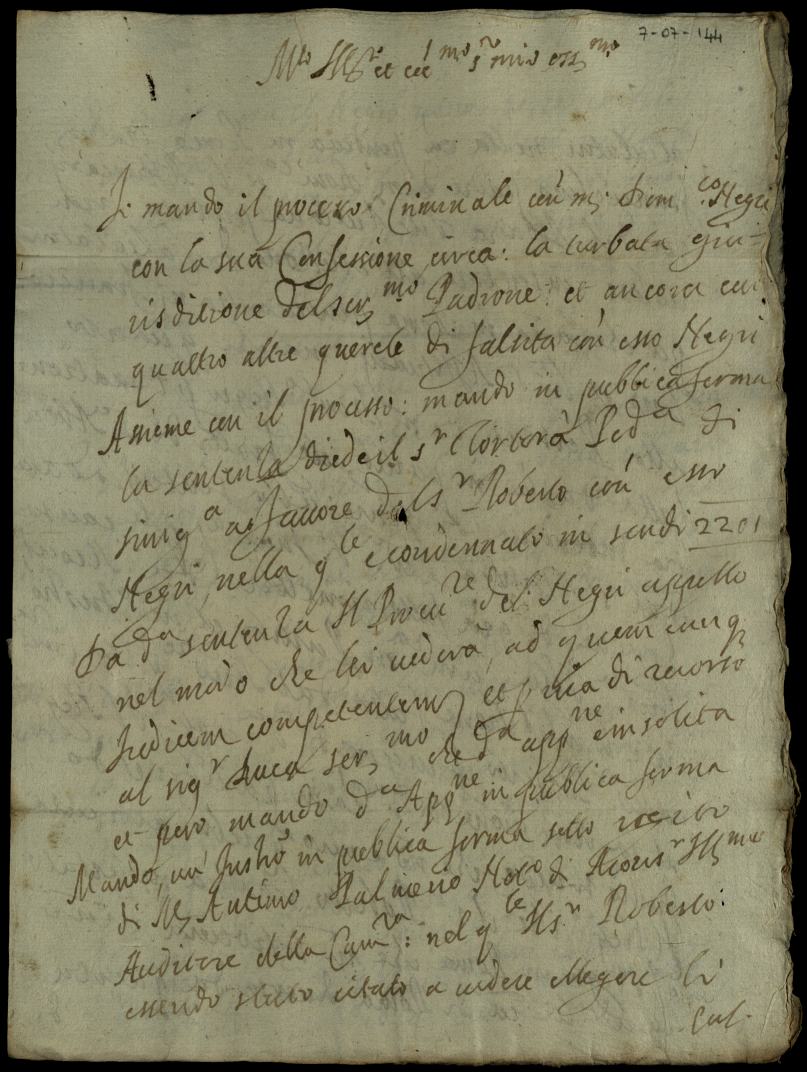 7-07-144
Mto Ill.re et ecc.mo s.r mio oss.mo
Li mando il processo Criminale con m. Dom.co Negri
con la sua Confessione circa: la turbata giu=
risditione del ser.mo Padrone: et ancora con
quattro altre querele di falsita con esso Negri
Assieme con il processo: mando in pubblica forma
la sentenza diede il s.r Pod.a di
sinig.a a favore del s.r Roberto con esso
Negri, nella q.le e condennato in scudi 2201
Da d.a sentenza Il Procu.re del Negri appello
nel modo che lei vedera, ad quem cunq.
Judicem competentem, et p via di ricorso
al sig.r Duca ser.mo che d.a app.ne e insolita
et pero mando d.a App.ne in publica forma
Mando, un Instro in publica forma sotto rogito
di M. Antimo Palmerio Noto di Mons.r Ill.mo
Auditore della Cam.ra: nel q.le Il s.r Roberto:
essendo stato citato a vedere ellegere li